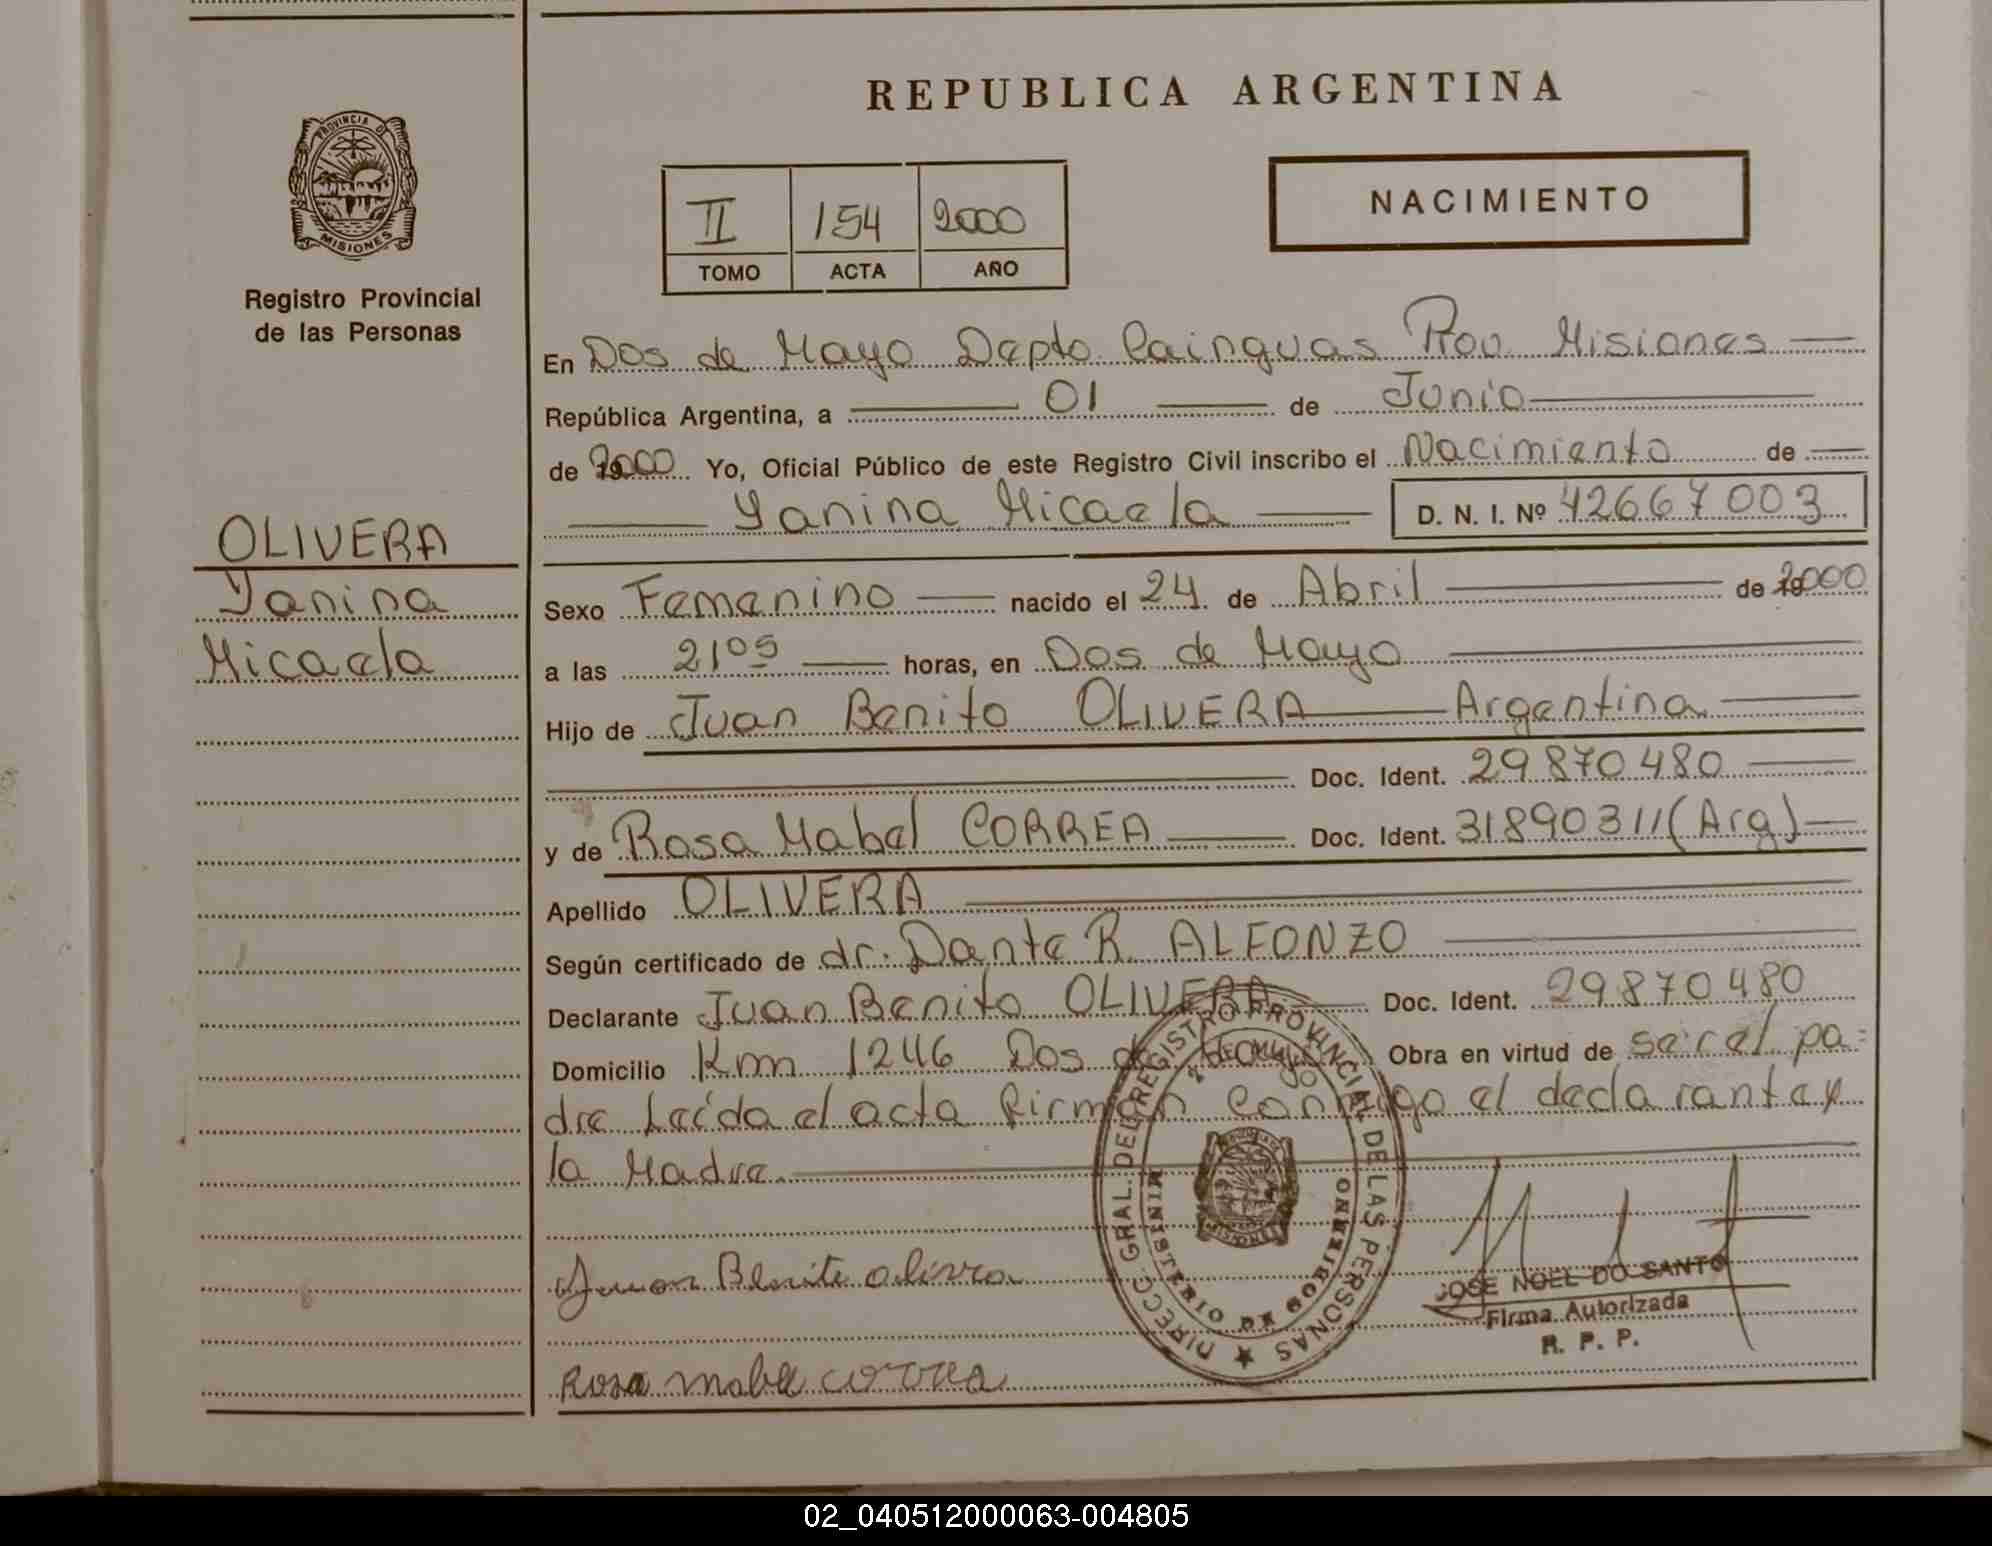 REPUBLICA ARGENTINA
PROVINCIA DE
MISIONES
Registro Provincial
de las Personas
II 154 2000
TOMO ACTA AÑO
NACIMIENTO
En Dos de Mayo Depto Cainguas Prov. Misiones
República Argentina, a 01 de Junio
de 2000 Yo, Oficial Público de este Registro Civil inscribo el Nacimiento de
Yanina Micaela D. N. I. Nº 42667003
OLIVERA
Yanina
Micaela
Sexo Femenino nacido el 24 de Abril de 2000
a las 21⁰⁵ horas, en Dos de Mayo
Hijo de Juan Benito OLIVERA Argentina
Doc. Ident. 29870480
y de Rosa Mabel CORREA Doc. Ident. 31890311 (Arg)
Apellido OLIVERA
Según certificado de dr. Dante R. ALFONZO
Declarante Juan Benito OLIVERA Doc. Ident. 29870480
Domicilio Km 1246 Dos de Mayo Obra en virtud de ser el pa-
dre Leída el acta firman conmigo el declarante y
la Madre.
DIRECC. GRAL. DEL REGISTRO PROVINCIAL DE LAS PERSONAS
MINISTERIO DE GOBIERNO
MISIONES
Juan Benito olivera
JOSE NOEL DO SANTO
Firma Autorizada
R. P. P.
Rosa mabel correa
02_040512000063-004805